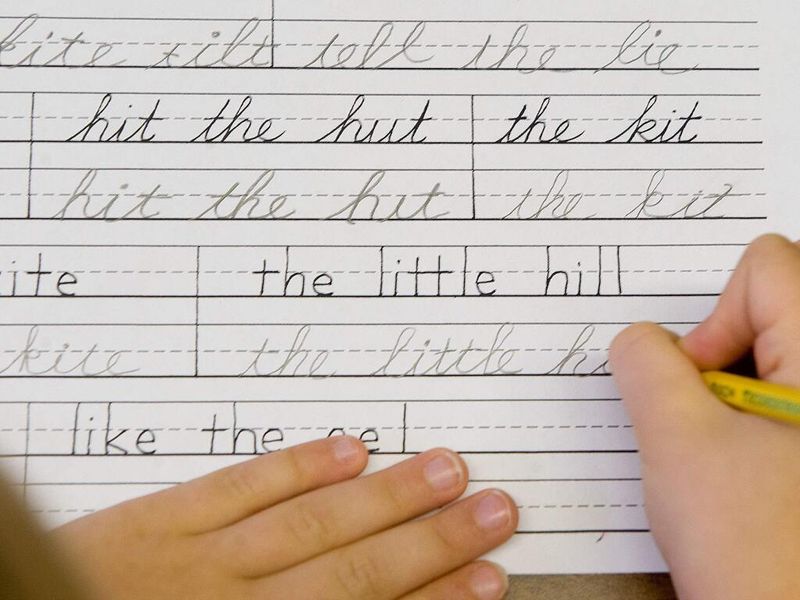 kite tilt tell the lie
hit the hut the kit
hit the hut the kit
kite the little hill
kite the little
like the eel